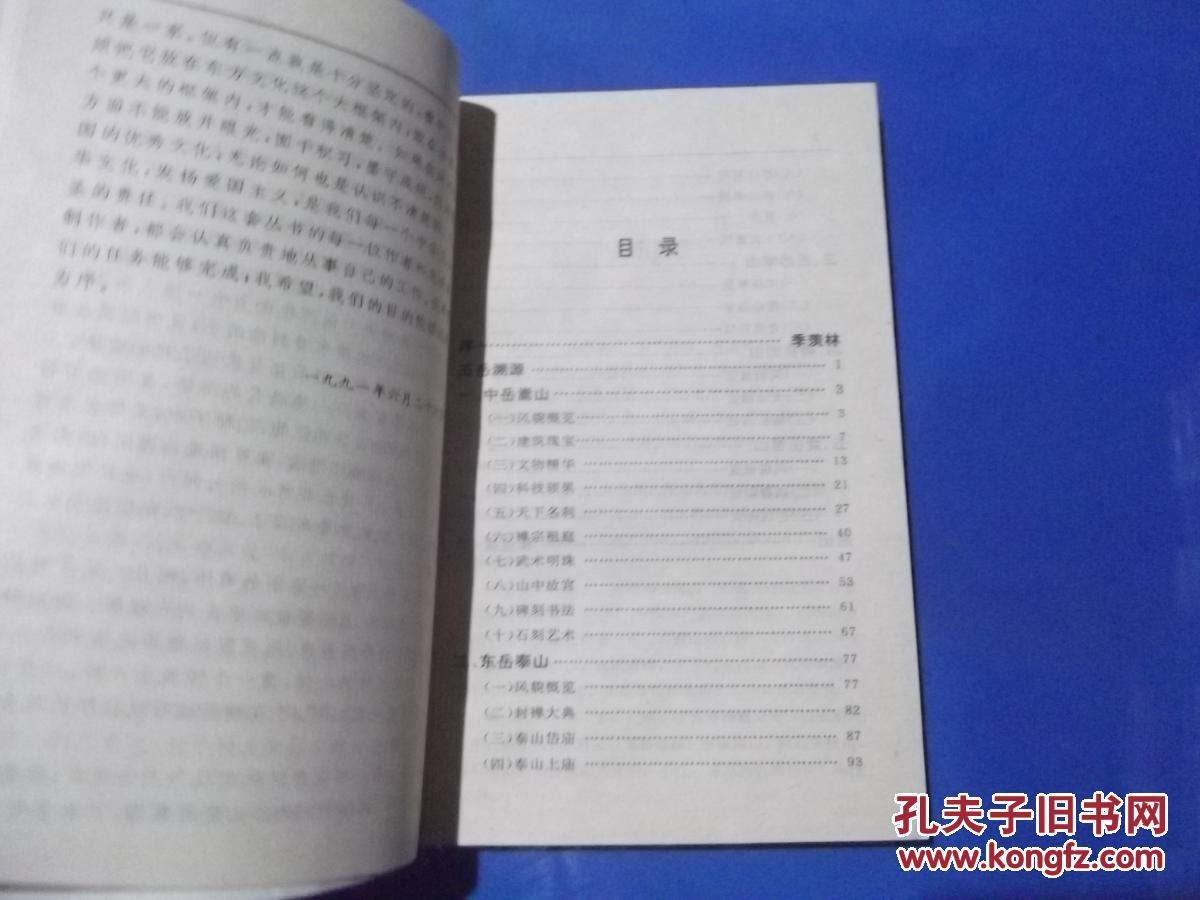 只是一家，但有一点我是十分坚定的，
把它放在东方文化这个大框架内，
个更大的框架内，才能看得清楚。如果
方面不能放开眼光，囿于积习，墨守成规，
国的优秀文化，无论如何也是认识不
华文化，发扬爱国主义，是我们每一个
的责任。我们这套丛书的每一位作者
制作者，都会认真负责地从事自己的工作。
们的任务能够完成；我希望，我们的目的
为序。
一九九一年六月二十
目 录
序 季羡林
五岳溯源 1
一、中岳嵩山 3
(一)风貌概览 3
(二)建筑珠宝 7
(三)文物精华 13
(四)科技硕果 21
(五)天下名刹 27
(六)禅宗祖庭 40
(七)武术明珠 47
(八)山中故宫 53
(九)碑刻书法 61
(十)石刻艺术 67
二、东岳泰山 77
(一)风貌概览 77
(二)封禅大典 82
(三)泰山岱庙 87
(四)泰山上庙 93
孔夫子旧书网
www.kongfz.com